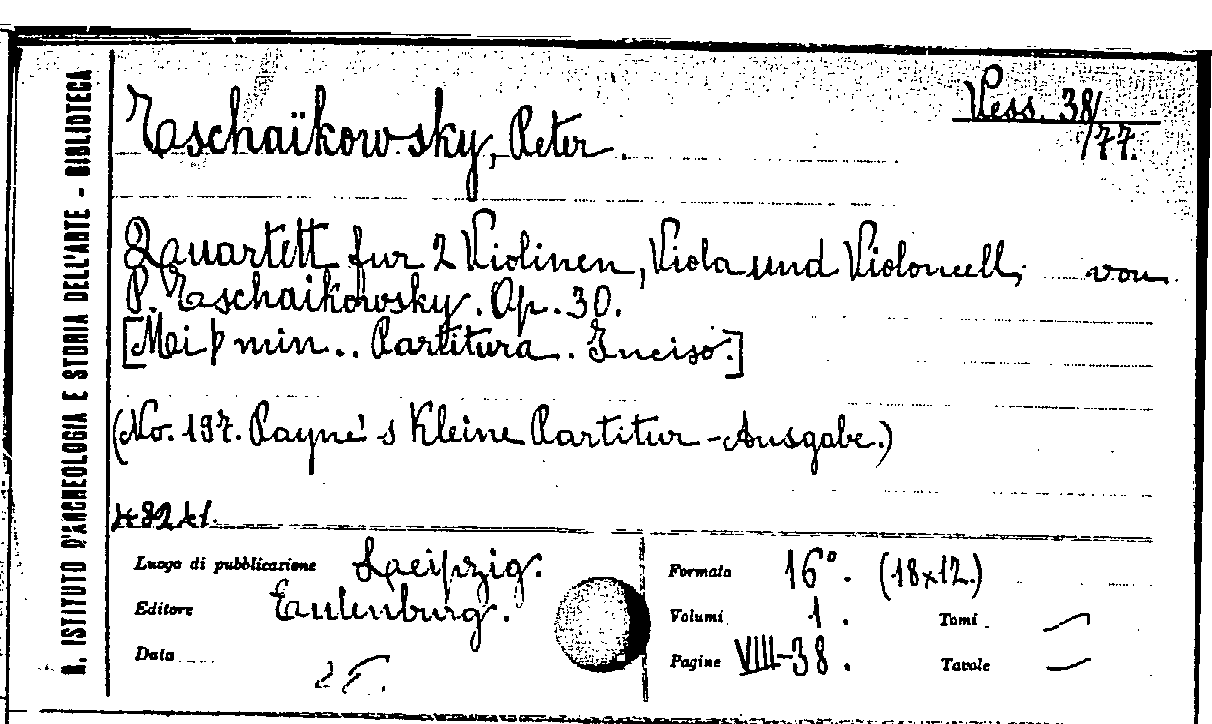 R. ISTITUTO D'ARCHEOLOGIA E STORIA DELL'ARTE - BIBLIOTECA
Vess. 38/77.
Tschaïkowsky, Peter.
Quartett fur 2 Violinen, Viola und Violoncell, von
P. Tschaikowsky. Op. 30.
[Mi b min.. Partitura. Inciso.]
(No. 197. Payne's Kleine Partitur-Ausgabe.)
48241.
Luogo di pubblicazione Leipzig.
Editore Eulenburg.
Data
Formato 16°. (18x12.)
Volumi 1. Tomi —
Pagine VIII-38. Tavole —